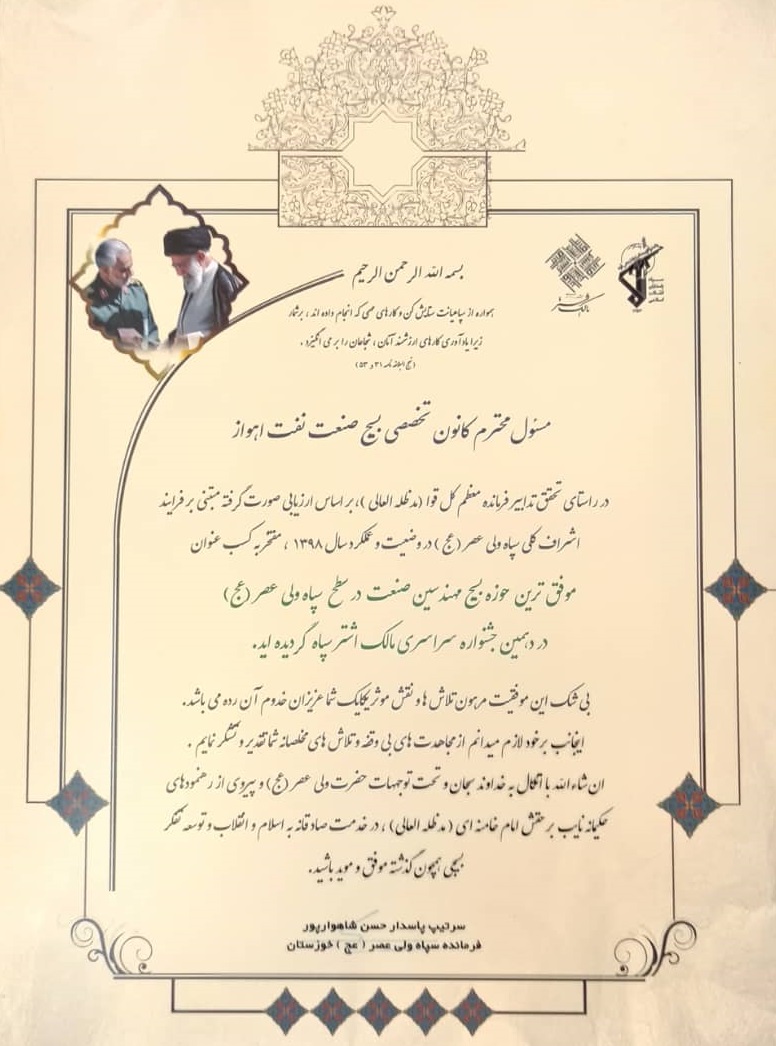 بسمه الله الرحمن الرحیم
همواره از سپاهیانت ستایش کن و کارهای مهمی که انجام داده اند ، برشمار
زیرا یادآوری کارهای ارزشمند آنان ، شجاعان را بر می انگیزد .
(نهج البلاغه نامه ۳۱ و ۵۳)
مسئول محترم کانون تخصصی بسیج صنعت نفت اهواز
در راستای تحقق تدابیر فرمانده معظم کل قوا (مدظله العالی )، بر اساس ارزیابی صورت گرفته مبتنی بر فرایند
اشراف کلی سپاه ولی عصر (عج ) در وضعیت و عملکرد سال ۱۳۹۸ ، مفتخر به کسب عنوان
موفق ترین حوزه بسیج مهندسین صنعت در سطح سپاه ولی عصر (عج)
در دهمین جشنواره سراسری مالک اشتر سپاه گردیده اید.
بی شک این موفقیت مرهون تلاش ها و نقش موثر یکایک شما عزیزان خدوم آن رده می باشد.
اینجانب بر خود لازم میدانم از مجاهدت های بی وقفه و تلاش های مخلصانه شما تقدیر و تشکر نمایم .
ان شاء الله با اتکال به خداوند سبحان و تحت توجهات حضرت ولی عصر (عج) و پیروی از رهنمودهای
حکیمانه نایب بر حقش امام خامنه ای ( مدظله العالی ) ، در خدمت صادقانه به اسلام و انقلاب و توسعه تفکر
بسیجی همچون گذشته موفق و موید باشید.
سرتیپ پاسدار حسن شاهوارپور
فرمانده سپاه ولی عصر ( عج ) خوزستان